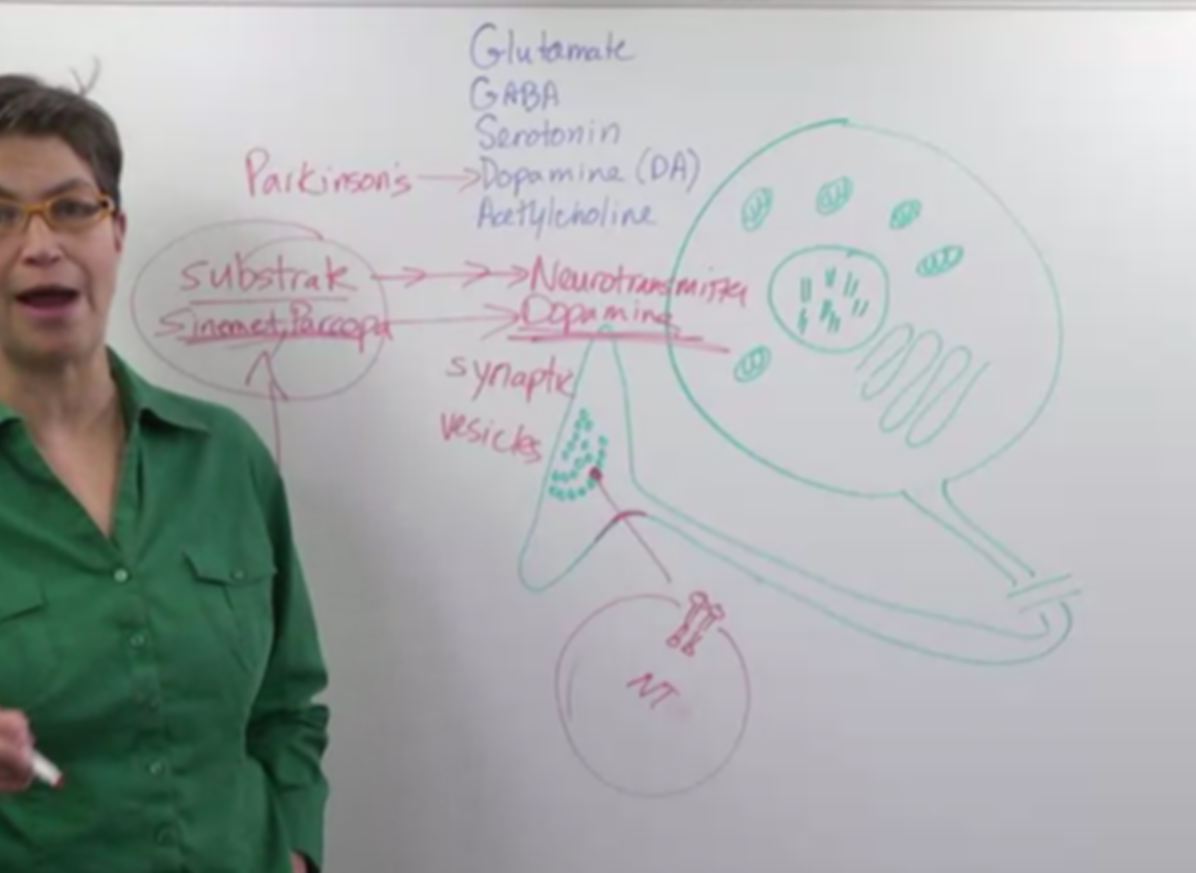 Glutamate
GABA
Serotonin
Parkinson's → Dopamine (DA)
Acetylcholine
substrate →→→ Neurotransmitter
Sinemet, Parcopa → Dopamine
synaptic
vesicles
NT